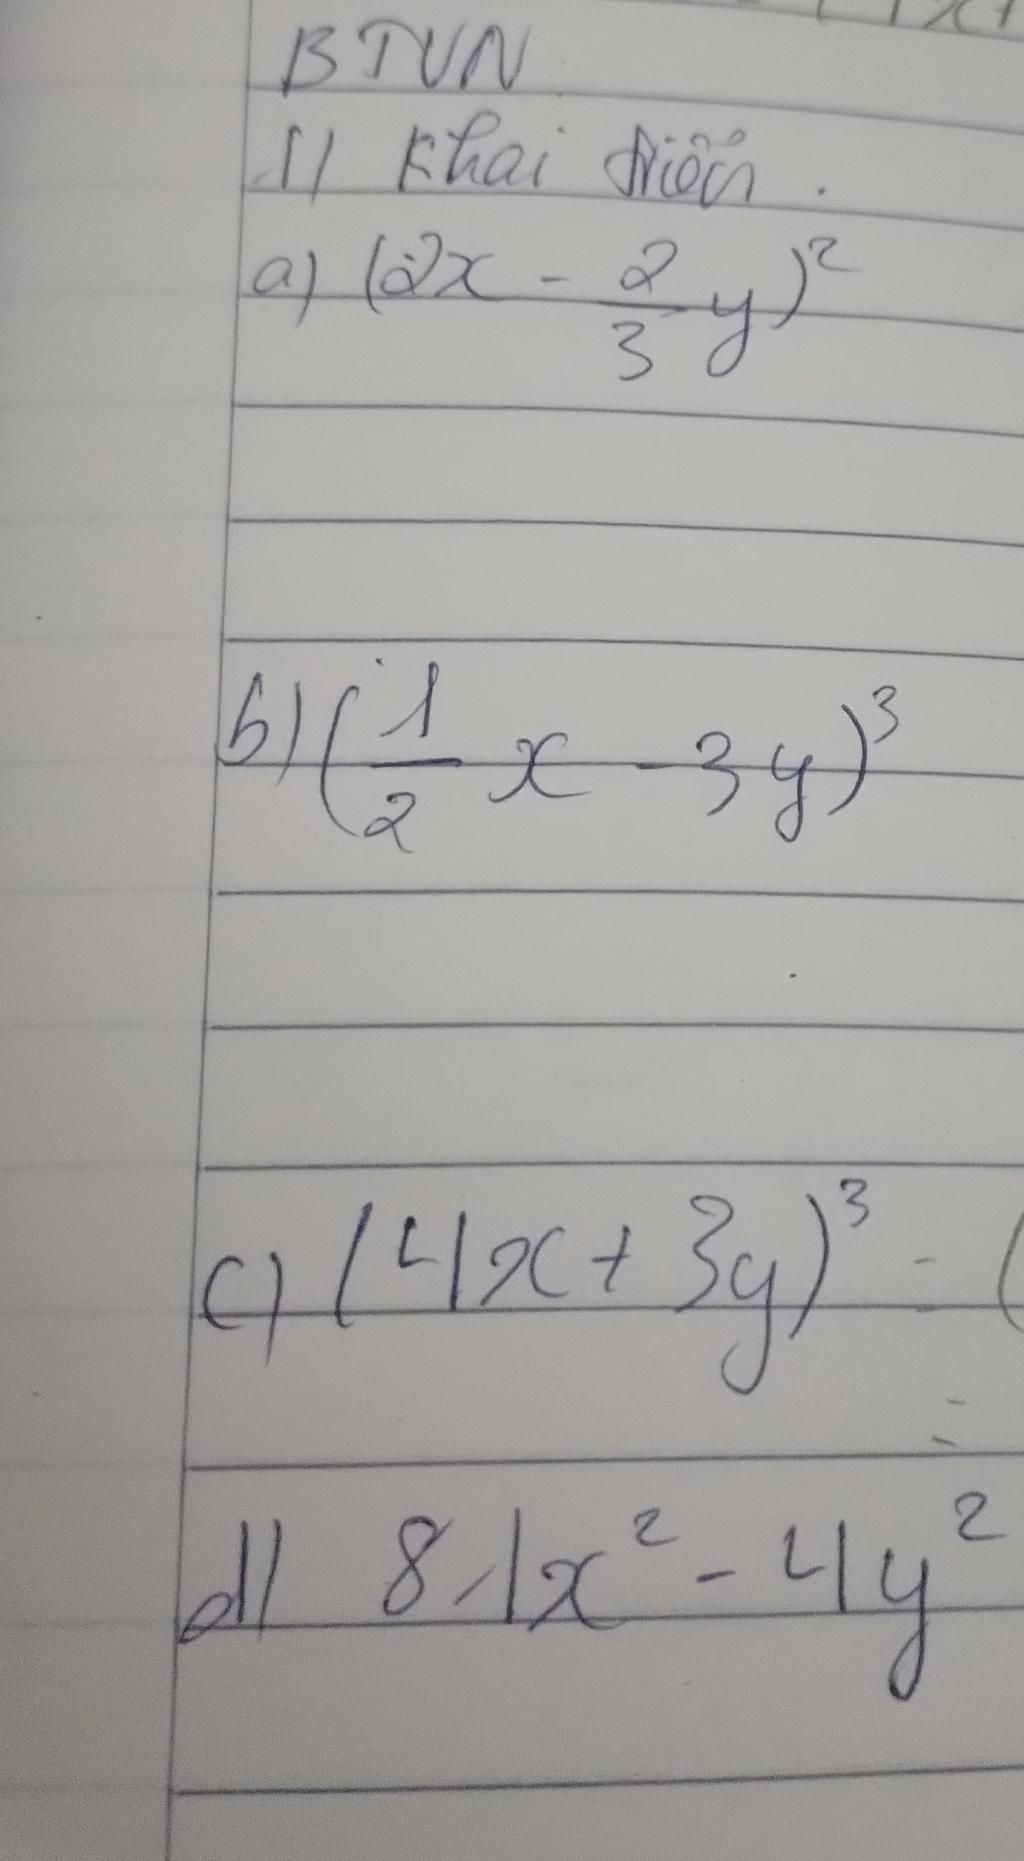 BTVN
1/ Khai triển.
a) (2x - 2/3 y)²
b) (1/2 x - 3y)³
c) (4x + 3y)³ = (
=
d) 81x² - 4y²